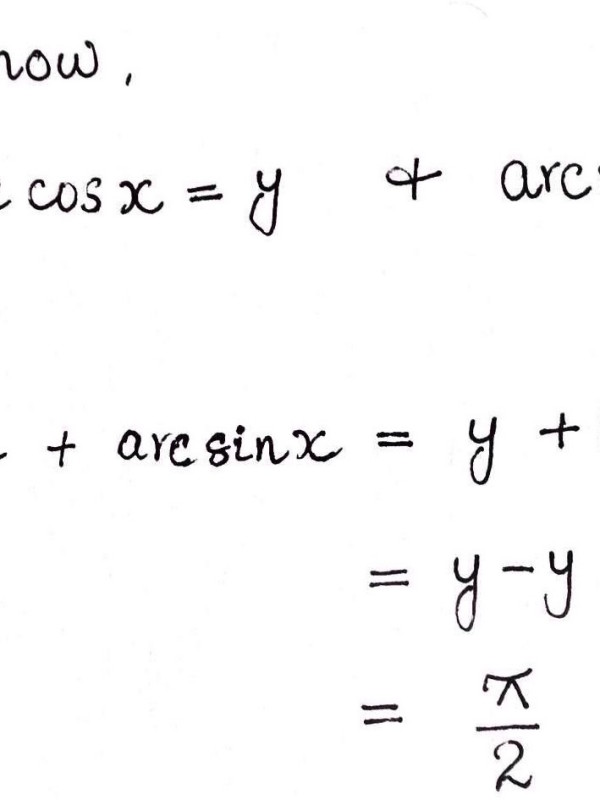 now,
cos x = y & arc
+ arc sin x = y +
= y - y
= π/2